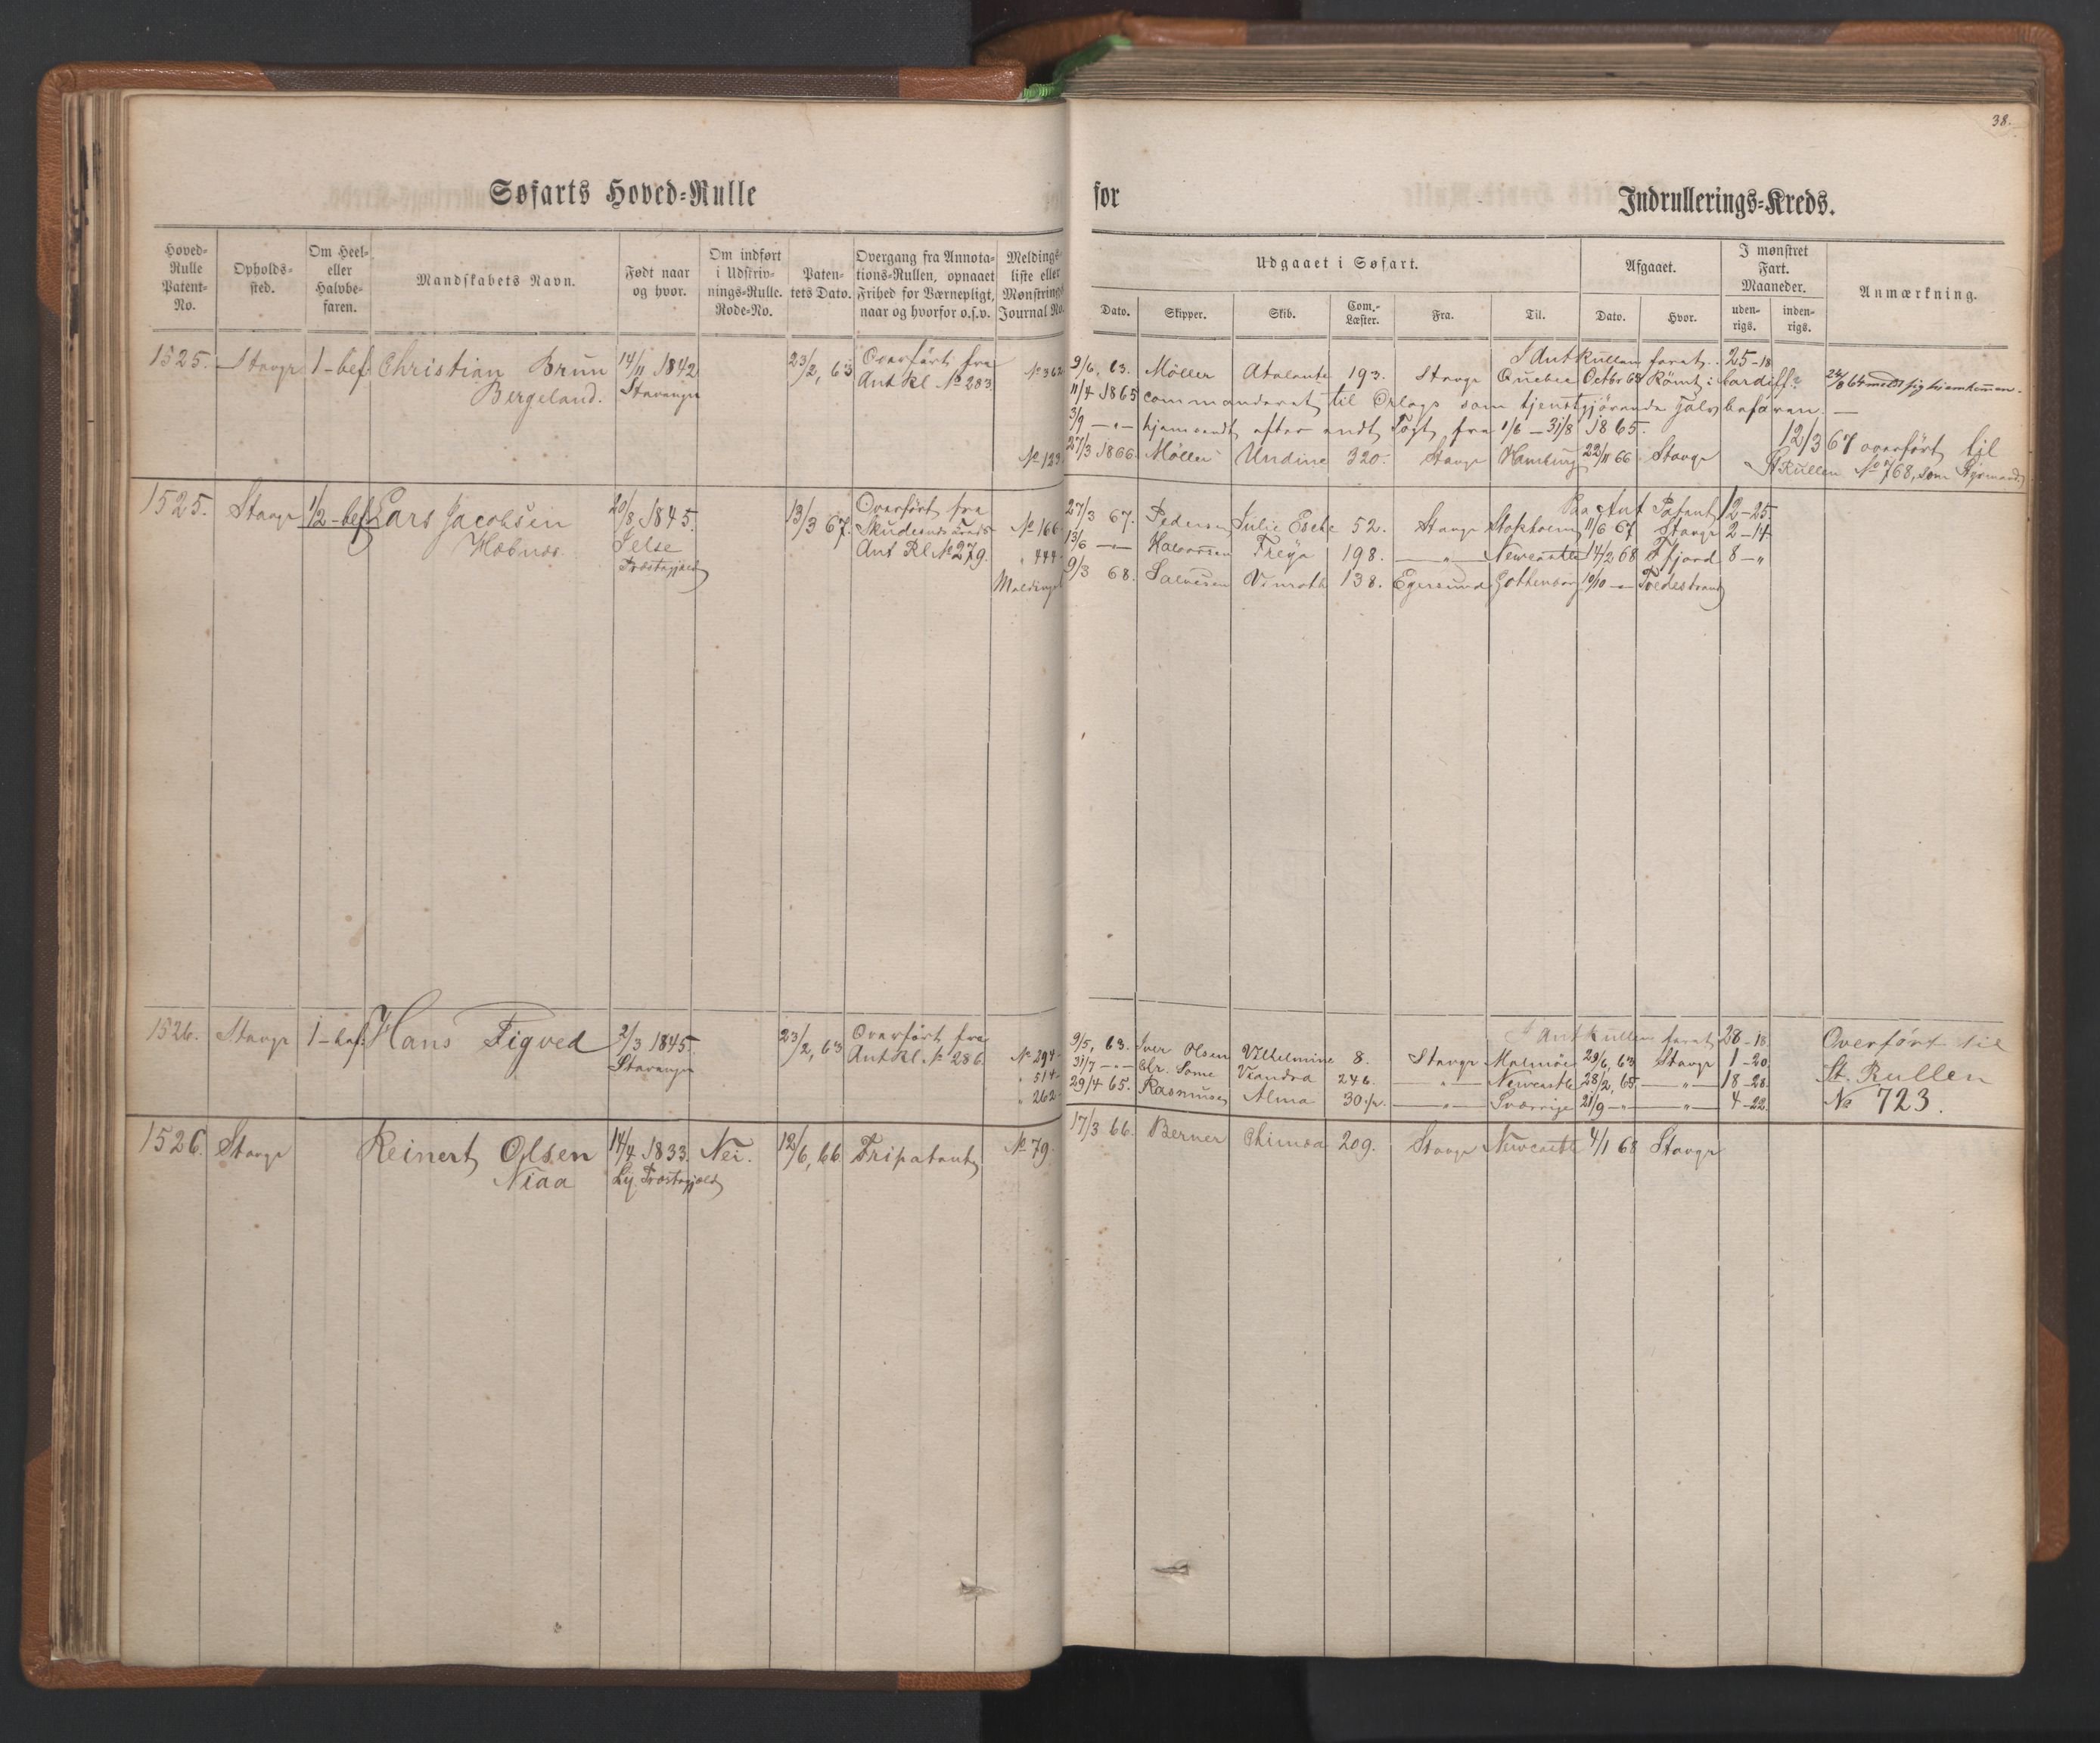 38.
Søfarts Hoved-Rulle
for
Indrullerings-Kreds.
Hoved-Rulle Patent-No.
Opholds-sted.
Om Heel- eller Halvbe-faren.
Mandskabets Navn.
Født naar og hvor.
Om indført i Udskriv-nings-Rulle. Rode-No.
Paten-tets Dato.
Overgang fra Annota-tions-Rullen, opnaaet Frihed for Værnepligt, naar og hvorfor o.s.v.
Meldings-liste eller Mønstrings Journal No.
Udgaaet i Søfart.
Dato.
Skipper.
Skib.
Com.-Læster.
Fra.
Til.
Afgaaet.
Dato.
Hvor.
I mønstret Fart. Maaneder.
uden-rigs.
inden-rigs.
Anmærkning.
1525. Stavgr 1-bef. Christian Brun 14/11 1842 23/2, 63 Overført fra No 362
Bergeland. Stavanger Ant Rl No 283.
No 123.
I Ant Rullen faret.. 25-18
9/6, 63. Møller Atalanta 193. Stavgr Quebec Octbr 63 Römt i Cardiff. 24/8 64 meldt sig hjemkommen.
11/4 1865 commanderet til Orlogs som tjenstgjørende halvbefaren.
3/9 — " — hjemsendt efter endt Togt fra 1/6 - 31/8 1865.
27/3 1866. Møller Undine 320. Stavgr Hamburg 22/11 66 Stavgr
12/3 67 overført til
St Rullen No 768, som Styrmand
1525. Stavgr 1/2-bef. Lars Jacobsen 20/8, 1845. 13/3 67. Overført fra No 166
Hebnes Jelse Skudesnes
Præstegjeld Ant Rl No 279. " 444
Melding
Paa Ant Patent 12-25
27/3 67. Pedersen Julie 52. Stavgr Stokholm 11/6 67 Stavgr 2-14
13/6 — " — Halvorsen Freya 198. — " — Newcastle 14/2 68 Ffjord 8 - "
9/3 68. Salvesen 138. Egersund Gothenborg 10/10 — " — Tvedestrand
1526. Stavgr 1-bef. Hans Tigved 2/3 1845. 23/2, 63 Overført fra No 294
Stavanger Ant Rl. No 286. " 514
" 262
I Ant Rullen faret 28-18
9/5, 63. Iver Olsen Vilhelmine 8. Stavgr Malmöe 29/6, 63 Stavgr 1-20
31/7 — " — Chr. Some 246. — " — Newcastle 28/2, 65 — " — 18-28
29/4 65. Rasmusen Alma 30 1/2. — " — Sverrige 21/9 — " — — " — 4-22
Overført til
St. Rullen
No 723.
1526. Stavgr Reinert Olsen 14/4 1833. Nei. 12/6, 66 Fripatent No 79.
Niaa Ly Præstegjeld
17/3 66. Berner 209. Stavgr Newcastle 4/1 68 Stavgr